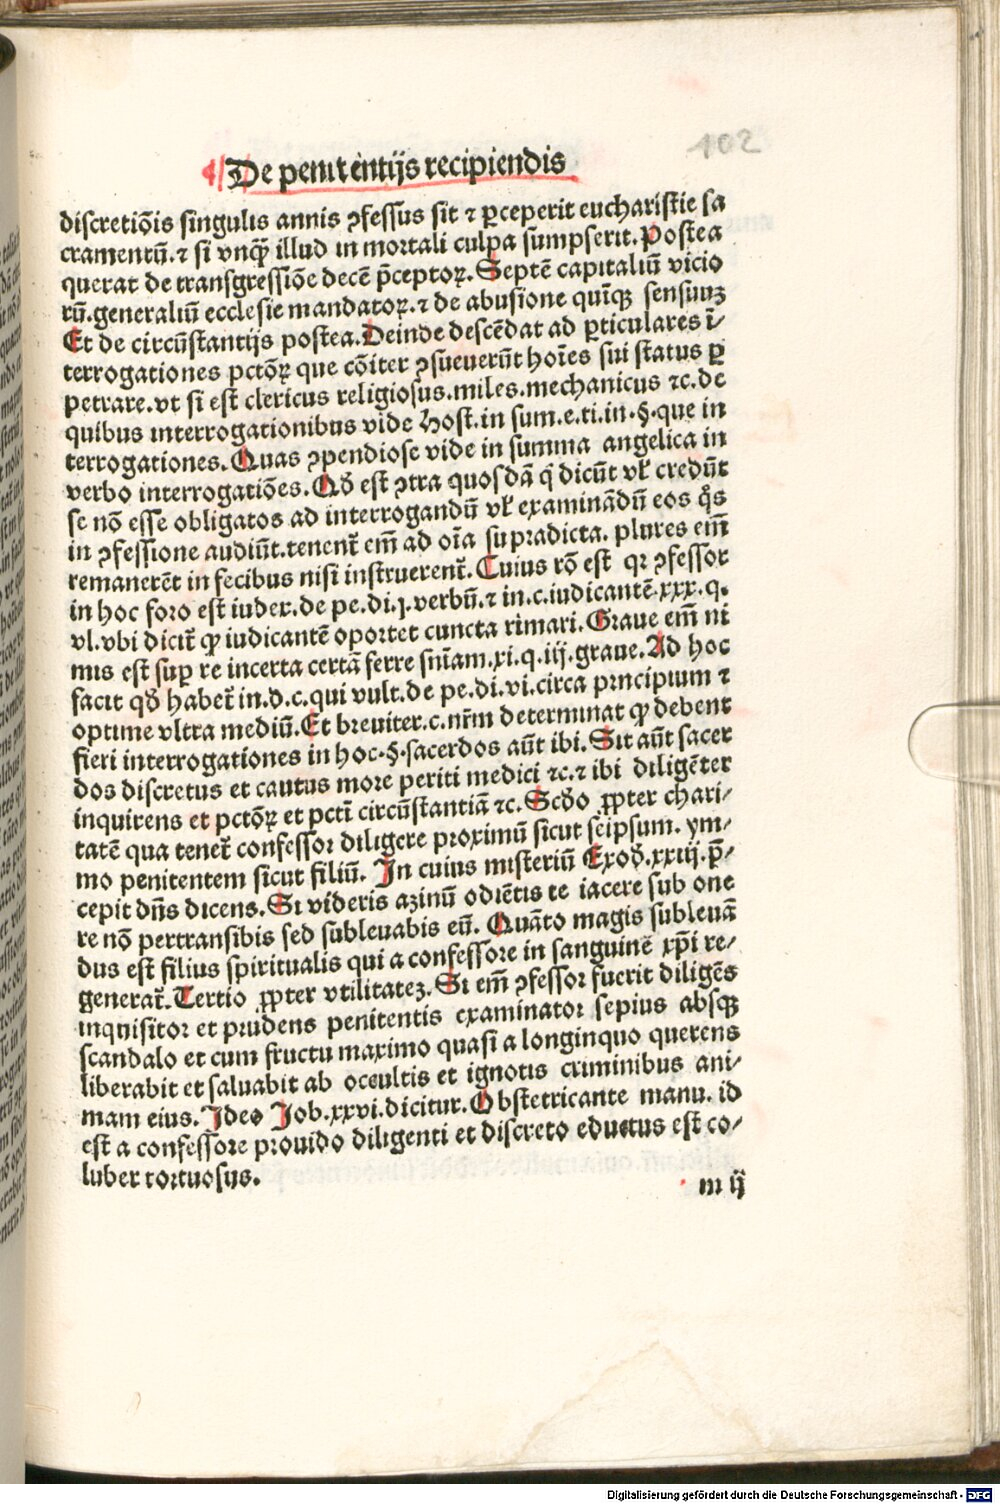 102
De penitentijs recipiendis
discretiõis singulis annis ꝯfessus sit ⁊ ꝑceperit eucharistie sa
cramentũ.⁊ si vnqꝫ̃ illud in mortali culpa sumpserit. Postea
querat de transgressiõe decẽ p̃ceptoꝝ. Septẽ capitaliũ vicio
rũ.generaliũ ecclesie mandatoꝝ.⁊ de abusione quĩqꝫ sensuuꝫ
Et de circũstantijs postea.Deinde descẽdat ad ꝑticulares ĩ-
terrogationes pctõꝝ que cõiter ꝯsueuerũt hoĩes sui status ꝑ
petrare.vt si est clericus religiosus.miles.mechanicus ⁊c.de
quibus interrogationibus vide Host.in sum.e.ti.in.§.que in
terrogationes. Quas ꝯpendiose vide in summa angelica in
verbo interrogatiões. Qđ est ꝯtra quosdã q̃ dicũt vľ credũt
se nõ esse obligatos ad interrogandũ vľ examinãdũ eos q̃s
in ꝯfessione audiũt.tenent̃ em̃ ad oĩa supradicta. plures em̃
remanerẽt in fecibus nisi instruerent̃. Cuius rõ est qꝛ ꝯfessor
in hoc foro est iudex.de pe.di.j.verbũ.⁊ in.c.iudicantẽ.xxx.q.
vl.vbi dicit̃ ꝙ iudicantẽ oportet cuncta rimari. Graue em̃ ni
mis est suꝑ re incerta certã ferre sniam̃.xi.q.iij.graue. Ad hoc
facit qđ habet̃ in.d.c.qui vult.de pe.di.vi.circa principium ⁊
optime vltra mediũ. Et breuiter.c.nr̃m determinat ꝙ debent
fieri interrogationes in hoc.§.sacerdos aũt ibi. Sit aũt sacer
dos discretus et cautus more periti medici ⁊c.⁊ ibi diligẽter
inquirens et pctõꝝ et pctĩ circũstantiã ⁊c. Scđo ꝓpter chari-
tatẽ qua tenet̃ confessor diligere proximũ sicut seipsum. ym-
mo penitentem sicut filiũ. In cuius misteriũ Exođ.xxiij.p̃-
cepit dñs dicens. Si videris azinũ odiẽtis te iacere sub one
re nõ pertransibis sed subleuabis eũ. Quãto magis subleuã
dus est filius spiritualis qui a confessore in sanguinẽ xp̃i re-
generat̃. Tertio ꝓpter vtilitateꝫ. Si em̃ ꝯfessor fuerit diligẽs
inquisitor et prudens penitentis examinator sepius absqꝫ
scandalo et cum fructu maximo quasi a longinquo querens
liberabit et saluabit ab occultis et ignotis criminibus ani-
mam eius. Ideo Job.xxvi.dicitur. Obstetricante manu. id
est a confessore prouido diligenti et discreto eductus est co-
luber tortuosus.
m ij
Digitalisierung gefördert durch die Deutsche Forschungsgemeinschaft - DFG